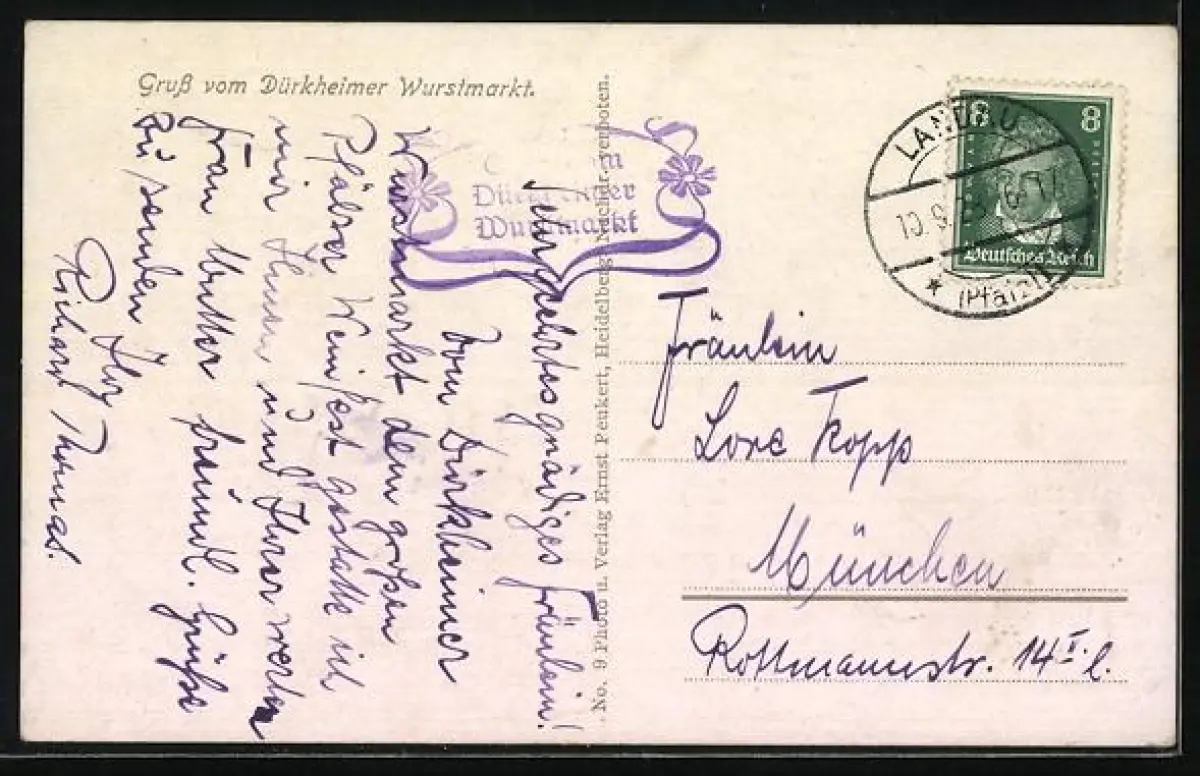 Gruß vom Dürkheimer Wurstmarkt.
Dürkheimer
Wurstmarkt
No. 9 Photo u. Verlag Ernst Peukert, Heidelberg verboten.
Sehr geehrtes gnädiges Fräulein!
Vom Dürkheimer
Wurstmarkt dem großen
Pfälzer Weinfest gestatte ich
mir Ihnen und Ihrer werten
Frau Mutter freundl. Grüße
zu senden Ihr
Richard Thomas.
8 8
Deutsches Reich
LANDAU
(Pfalz)
Fräulein
Lore Kopp
München
Rottmannstr. 14 I l.